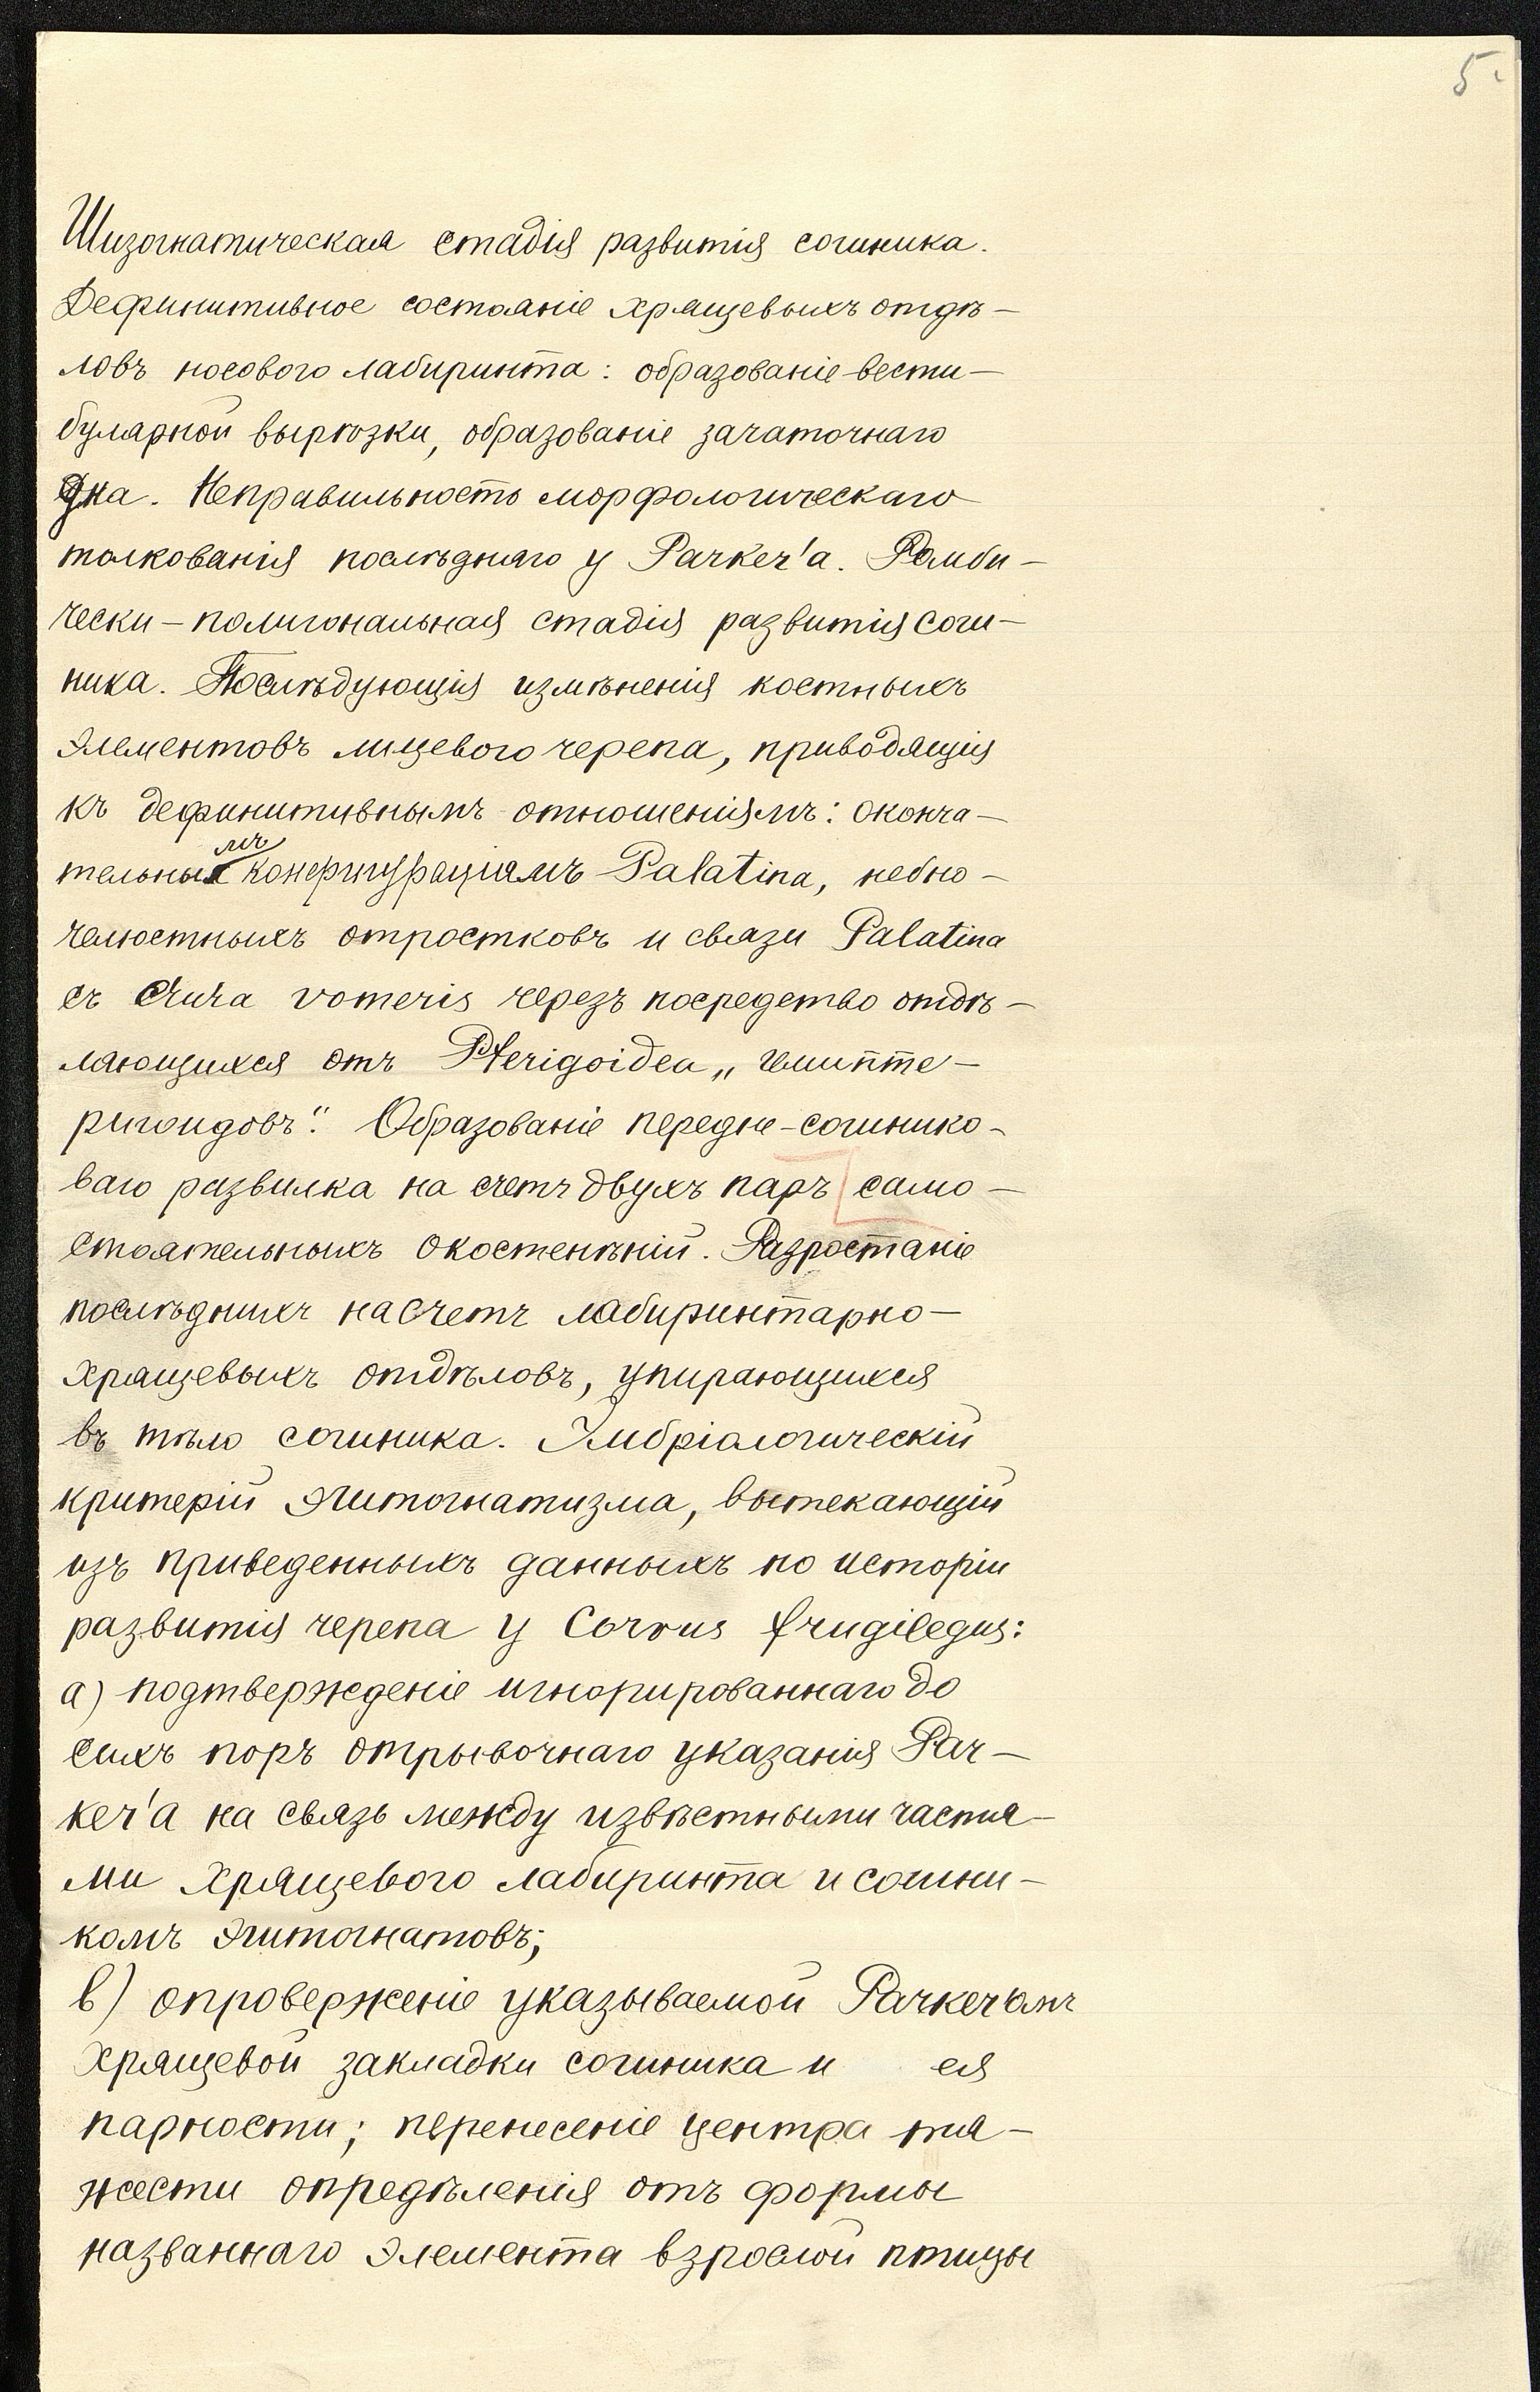 5
Шизогнатическая стадія развитія сошника.
Дефинитивное состояніе хрящевыхъ отдѣ-
ловъ носового лабиринта: образованіе вести-
булярной вырѣзки, образованіе зачаточнаго
дна. Неправильность морфологическаго
толкованія послѣдняго у Parker'а. Ромби-
чески-полигональная стадія развитія сош-
ника. Послѣдующія измѣненія костныхъ
элементовъ лицевого черепа, приводящія
къ дефинитивнымъ отношеніямъ: оконча-
тельнымъ конфигураціямъ Palatina, небно-
челюстныхъ отростковъ и связи Palatina
съ Crura vomeris черезъ посредство отдѣ-
ляющихся отъ Pterigoidea „гемипте-
ригоидовъ“. Образованіе передне-сошнико-
ваго развилка на счетъ двухъ паръ само-
стоятельныхъ окостенѣній. Разростаніе
послѣднихъ на счетъ лабиринтарно-
хрящевыхъ отдѣловъ, упирающихся
въ тѣло сошника. Эмбріологическій
критерій эгитогнатизма, вытекающій
изъ приведенныхъ данныхъ по исторіи
развитія черепа у Corvus frugilegus:
а) подтвержденіе игнорированнаго до
сихъ поръ отрывочнаго указанія Par-
ker'а на связь между извѣстными частя-
ми хрящевого лабиринта и сошни-
комъ эгитогнатовъ;
в) опроверженіе указываемой Parker'омъ
хрящевой закладки сошника и ея
парности; перенесеніе центра тя-
жести опредѣленія отъ формы
названнаго элемента взрослой птицы